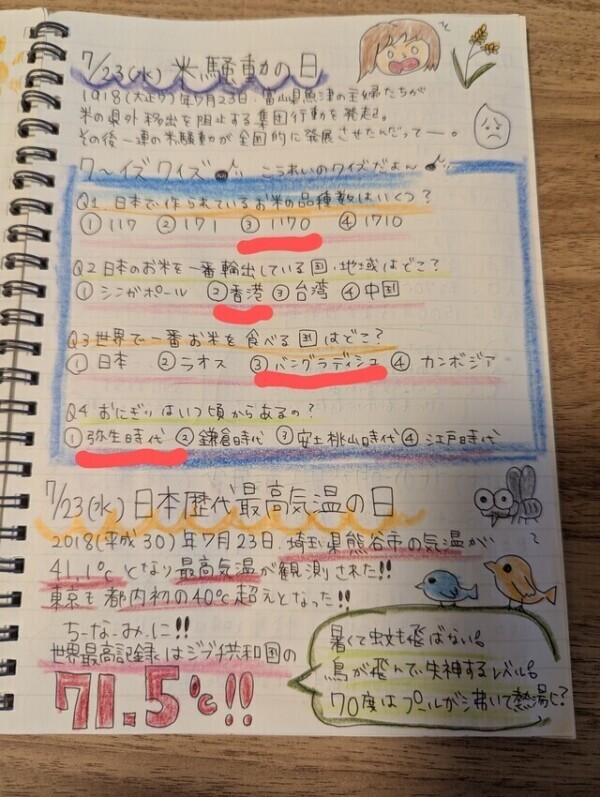 7/23(水) 米騒動の日
1918(大正7)年7月23日、富山県魚津の主婦たちが
米の県外移出を阻止する集団行動を発起。
その後一連の米騒動が全国的に発展させたんだってー。
ク〜イズクイズ♪ こうれいのクイズだよん♪
Q1 日本で作られているお米の品種数はいくつ?
①117 ②171 ③1170 ④1710
Q2 日本のお米を一番輸出している国、地域はどこ?
①シンガポール ②香港 ③台湾 ④中国
Q3 世界で一番お米を食べる国はどこ?
①日本 ②ラオス ③バングラディシュ ④カンボジア
Q4 おにぎりはいつ頃からあるの?
①弥生時代 ②鎌倉時代 ③安土桃山時代 ④江戸時代
7/23(水) 日本歴代最高気温の日
2018(平成30)年7月23日、埼玉県熊谷市の気温が
41.1℃となり最高気温が観測された!!
東京も都内初の40℃超えとなった!!
ちーなーみーに!!
世界最高記録はジブチ共和国の
71.5℃!!
暑くて蚊も飛ばない。
鳥が飛んで失神するレベル。
70度はプールが沸いて熱湯に?